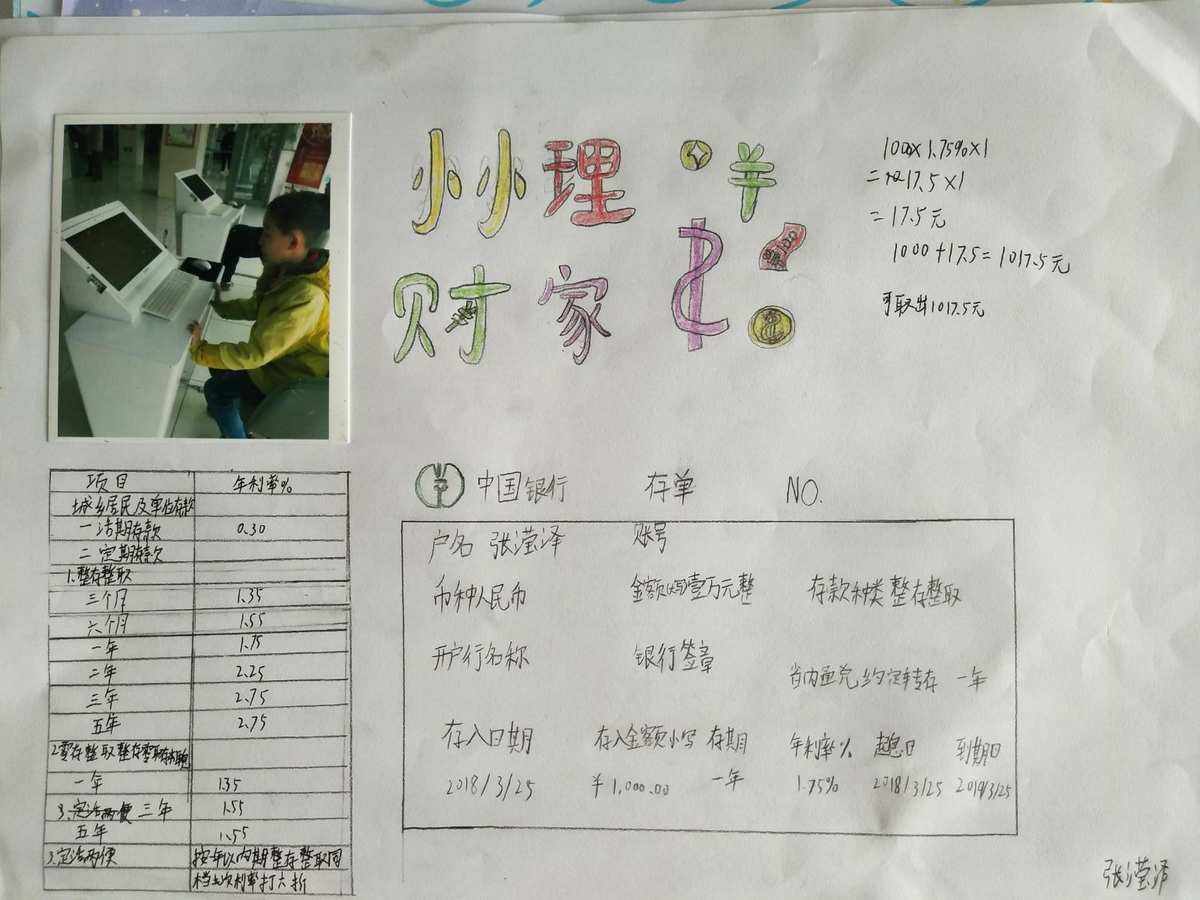 小小理
财家
1000×1.75%×1
=17.5×1
=17.5元
1000+17.5=1017.5元
可取出1017.5元
项目 年利率%
城乡居民及单位存款
一活期存款 0.30
二定期存款
1.整存整取
三个月 1.35
六个月 1.55
一年 1.75
二年 2.25
三年 2.75
五年 2.75
2零存整取整存零取存本取息
一年 1.35
三年 1.55
五年 1.55
3.定活两便 按年以内期整存整取同
档次利率打六折
中国银行 存单 NO.
户名 张滢泽 账号
币种人民币 金额大写壹万元整 存款种类 整存整取
开户行名称 银行签章
省内通兑 约定转存 一年
存入日期 存入金额小写 存期 年利率% 起息日 到期日
2018/3/25 ¥1,000.00 一年 1.75% 2018/3/25 2019/3/25
张滢泽